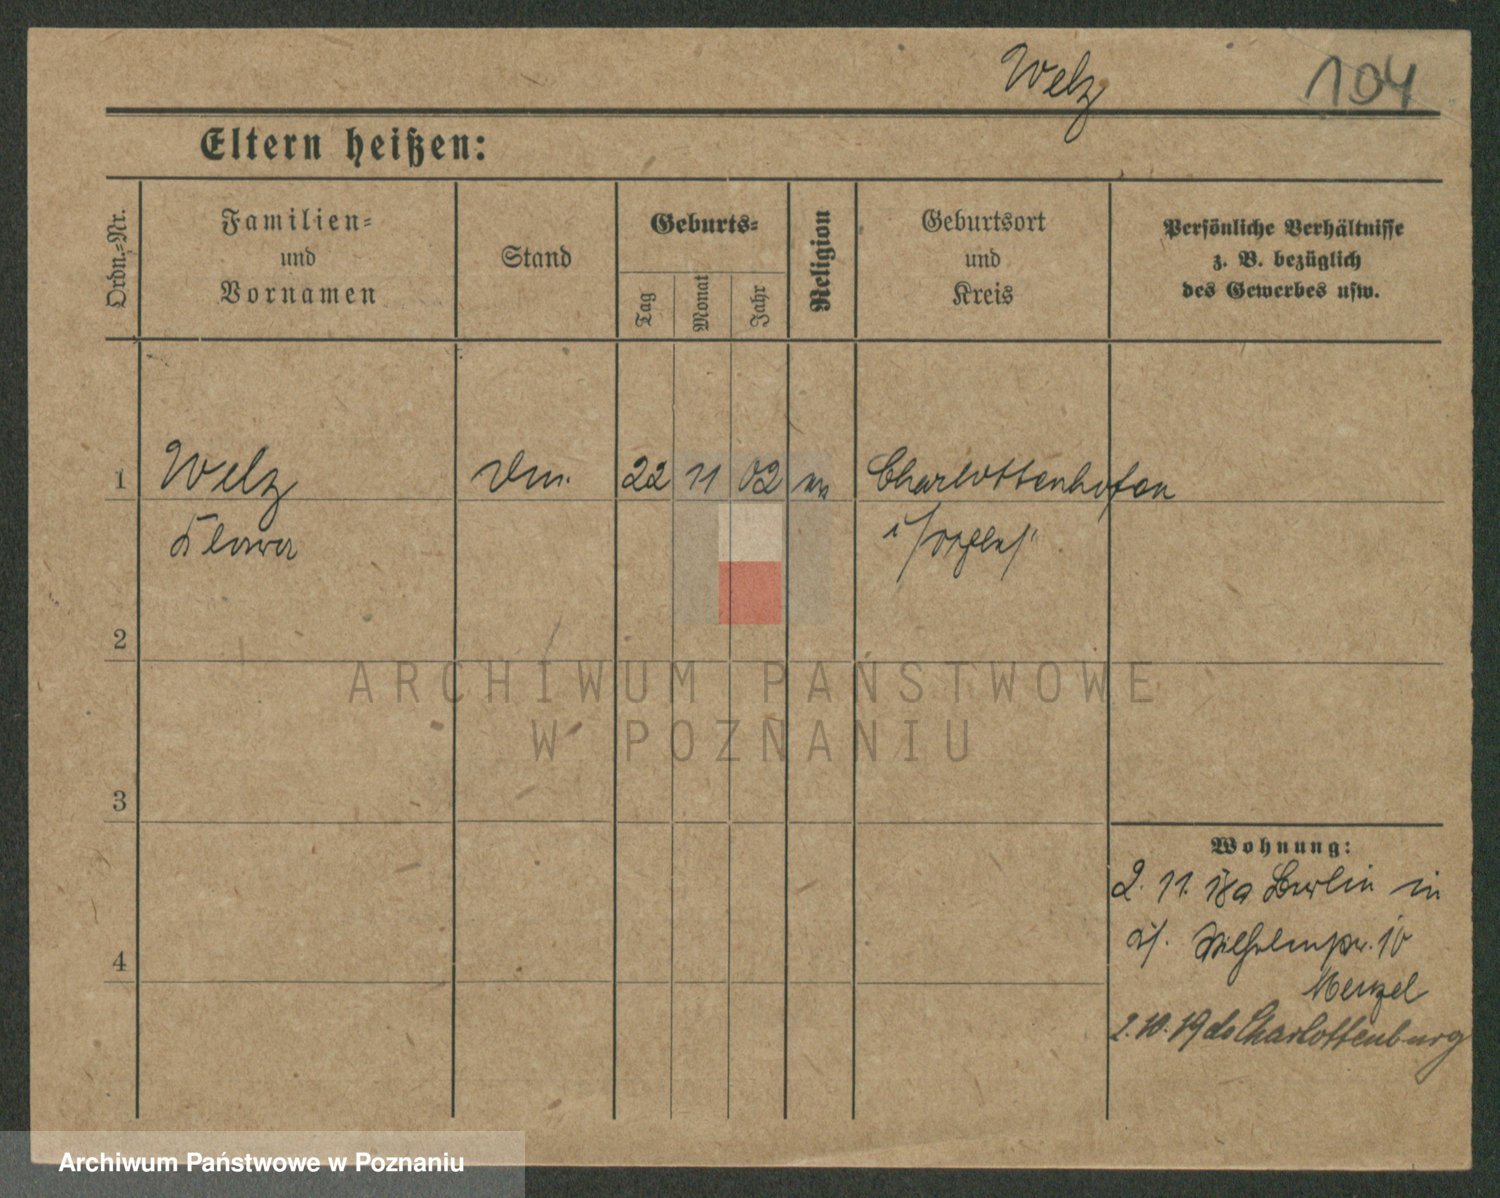 Welz 104
Eltern heißen:
Ordn.-Nr.
Familien-
und
Vornamen
Stand
Geburts-
Tag
Monat
Jahr
Religion
Geburtsort
und
Kreis
Persönliche Verhältnisse
z. B. bezüglich
des Gewerbes usw.
1 Welz 22 11 02 Charlottenhofen
Klara
2
3
4
Wohnung:
2. 11. Berlin in
10
Menzel
2. 10. 19 Charlottenburg
ARCHIWUM PAŃSTWOWE
W POZNANIU
Archiwum Państwowe w Poznaniu